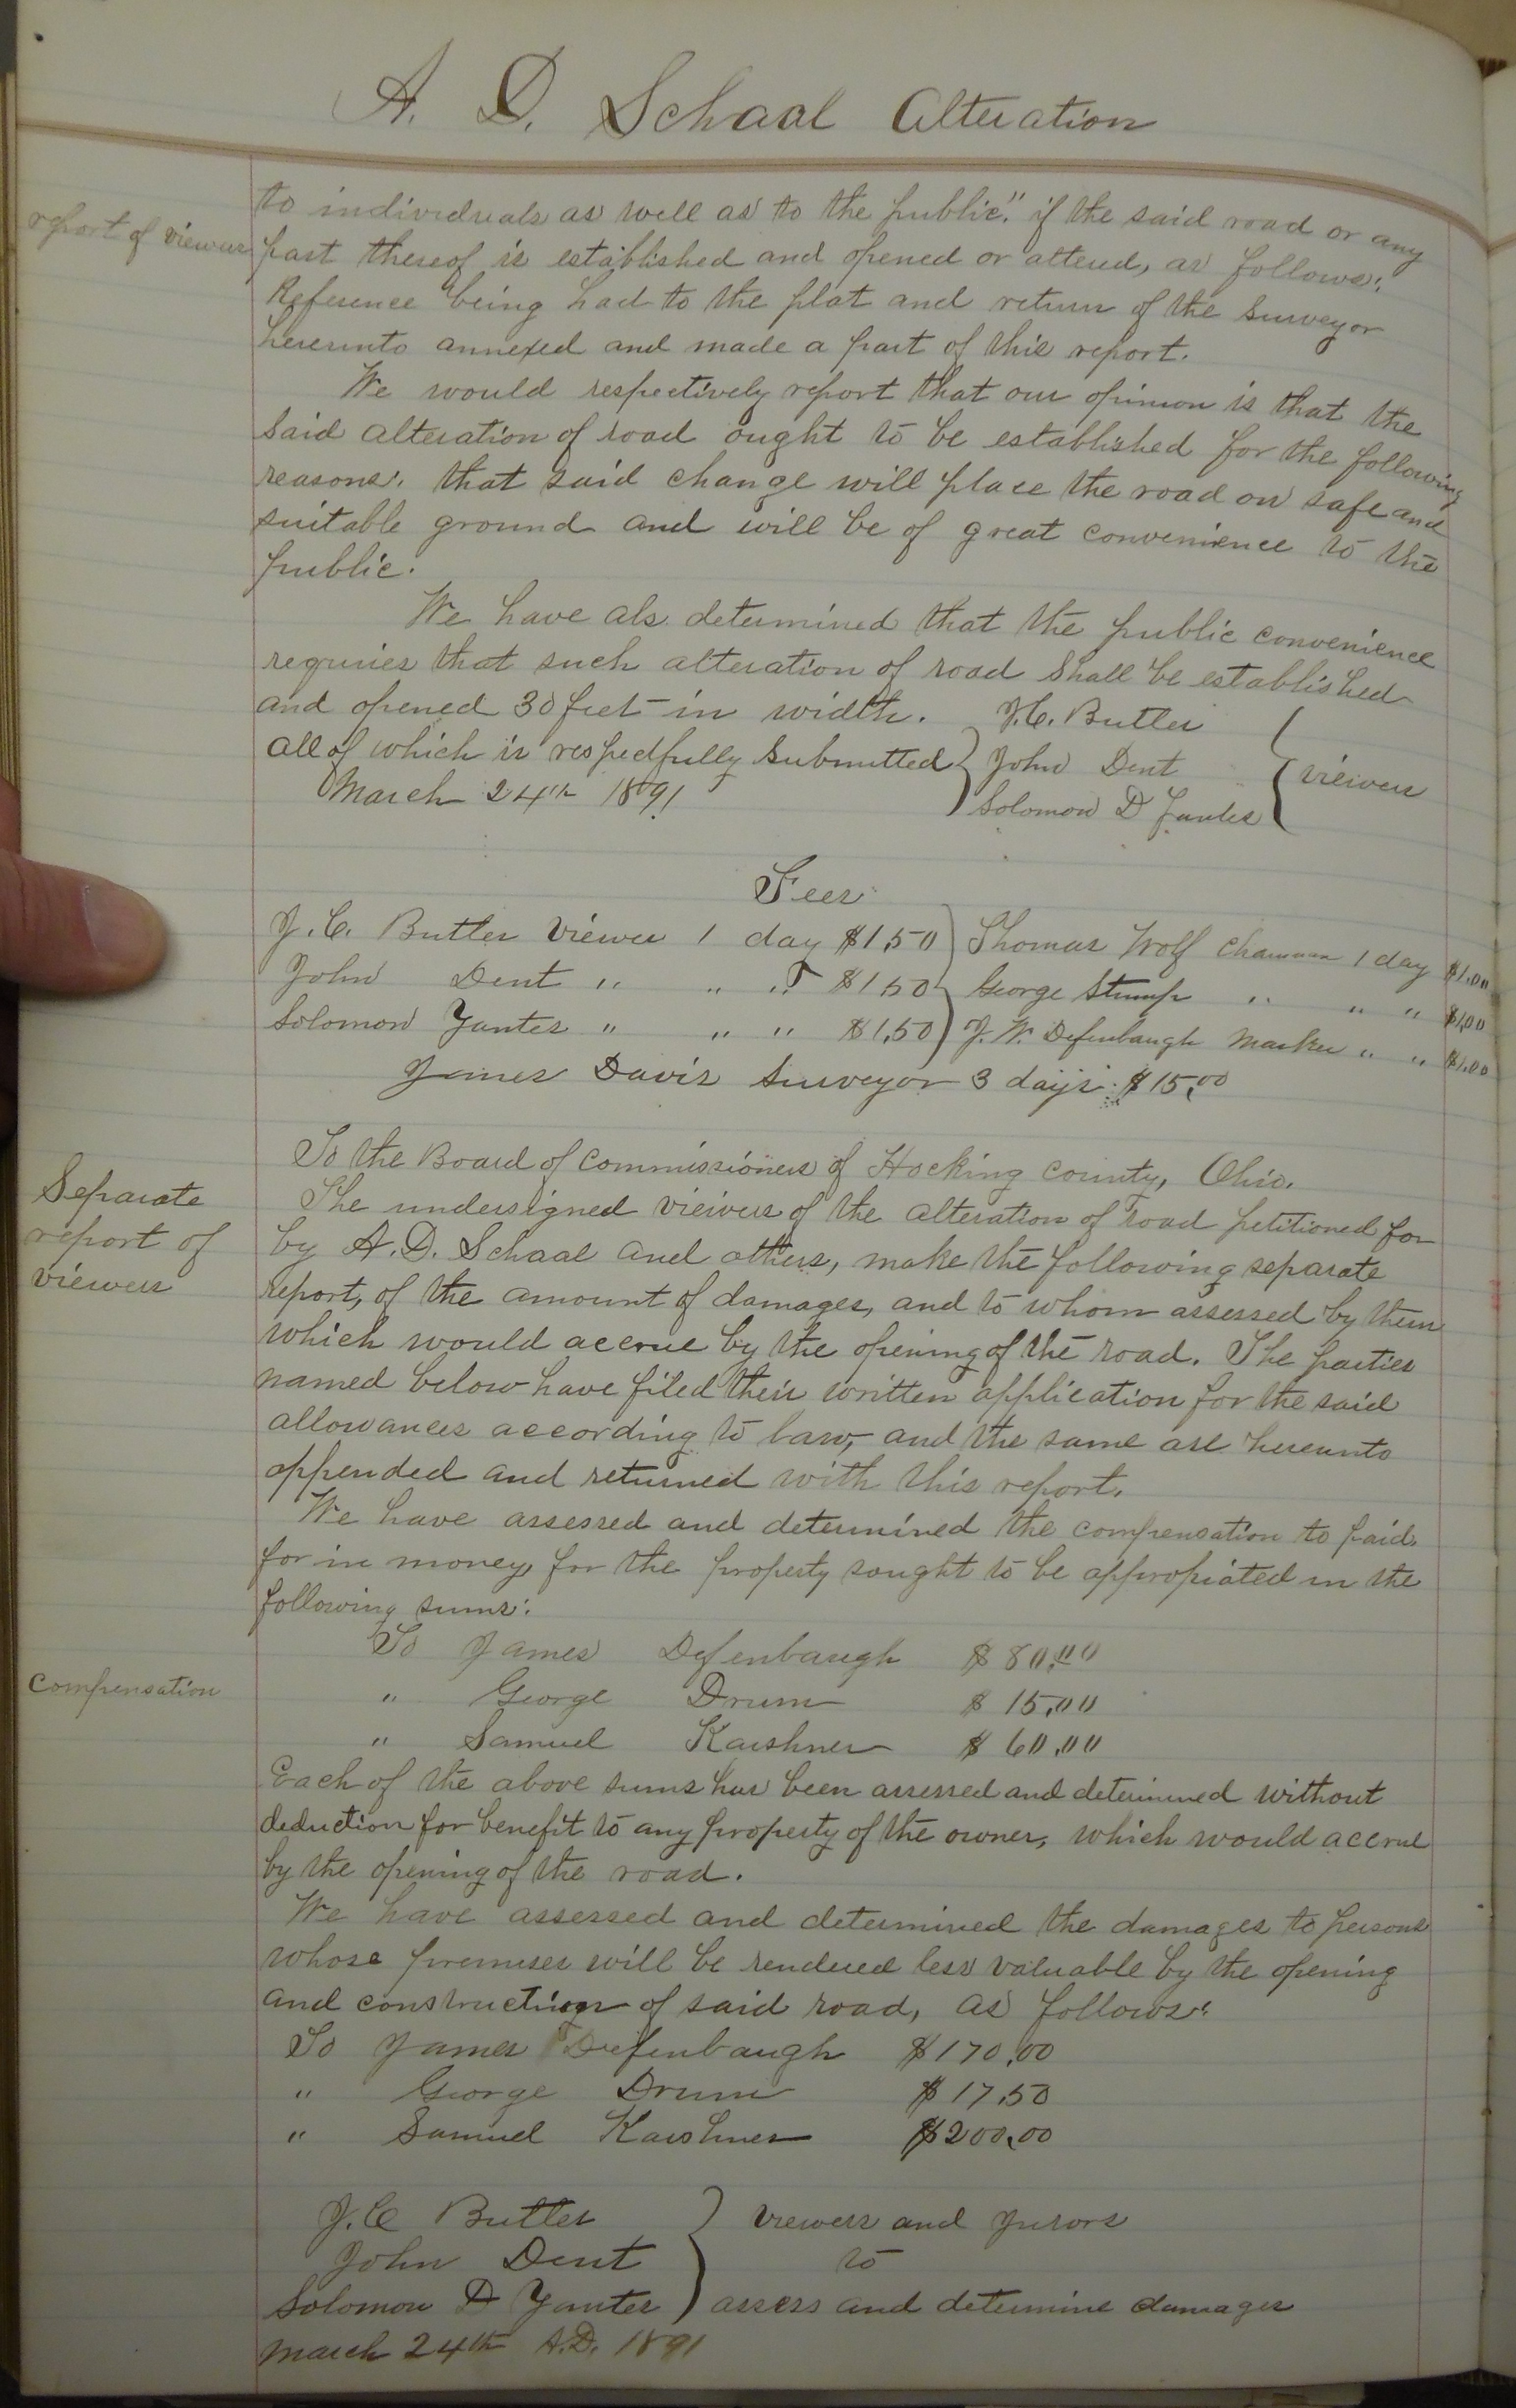 A. D. Schaal Alteration
report of viewers
to individuals as well as to the public." if the said road or any
part thereof is established and opened or altered, as follows:
Reference being had to the plat and return of the Surveyor
hereunto annexed and made a part of this report.
We would respectively report that our opinion is that the
said alteration of road ought to be established for the following
reasons: that said change will place the road on safe and
suitable ground and will be of great convenience to the
public.
We have als determined that the public convenience
requires that such alteration of road shall be established
and opened 30 feet in width.
all of which is respectfully submitted
March 24th 1891
J.C. Butler
John Dent
Solomon D Yantes
viewers
Fees
J. C. Butler Viewer 1 day $1,50 Thomas Wolf Chainman 1 day $1.00
John Dent " " " $1,50 George Stump " " " $1,00
Solomon Yantes " " " $1,50 J. W. Defenbaugh Marker " " $1.00
James Davis Surveyor 3 days $15,00
Separate
report of
viewers
To the Board of Commissioners of Hocking County, Ohio.
The undersigned viewers of the alteration of road petitioned for
by A. D. Schaal and others, make the following separate
report, of the amount of damages, and to whom assessed by them
which would accrue by the opening of the road. The parties
named below have filed their written application for the said
allowances according to law, and the same are hereunto
appended and returned with this report.
We have assessed and determined the compensation to paid
for in money, for the property sought to be appropiated in the
following sums:
Compensation
To James Defenbaugh $80.00
" George Drum $ 15,00
" Samuel Karshner $ 60.00
Each of the above sums has been assessed and determined without
deduction for benefit to any property of the owner, which would accrue
by the opening of the road.
We have assessed and determined the damages to persons
whose premises will be rendered less valuable by the opening
and construction of said road, as follows:
To James Defenbaugh $170.00
" George Drum $17,50
" Samuel Karshner $200.00
J. C Butler
John Dent
Solomon D Yantes
viewers and Jurors
to
assess and determine damages
March 24th A.D. 1891